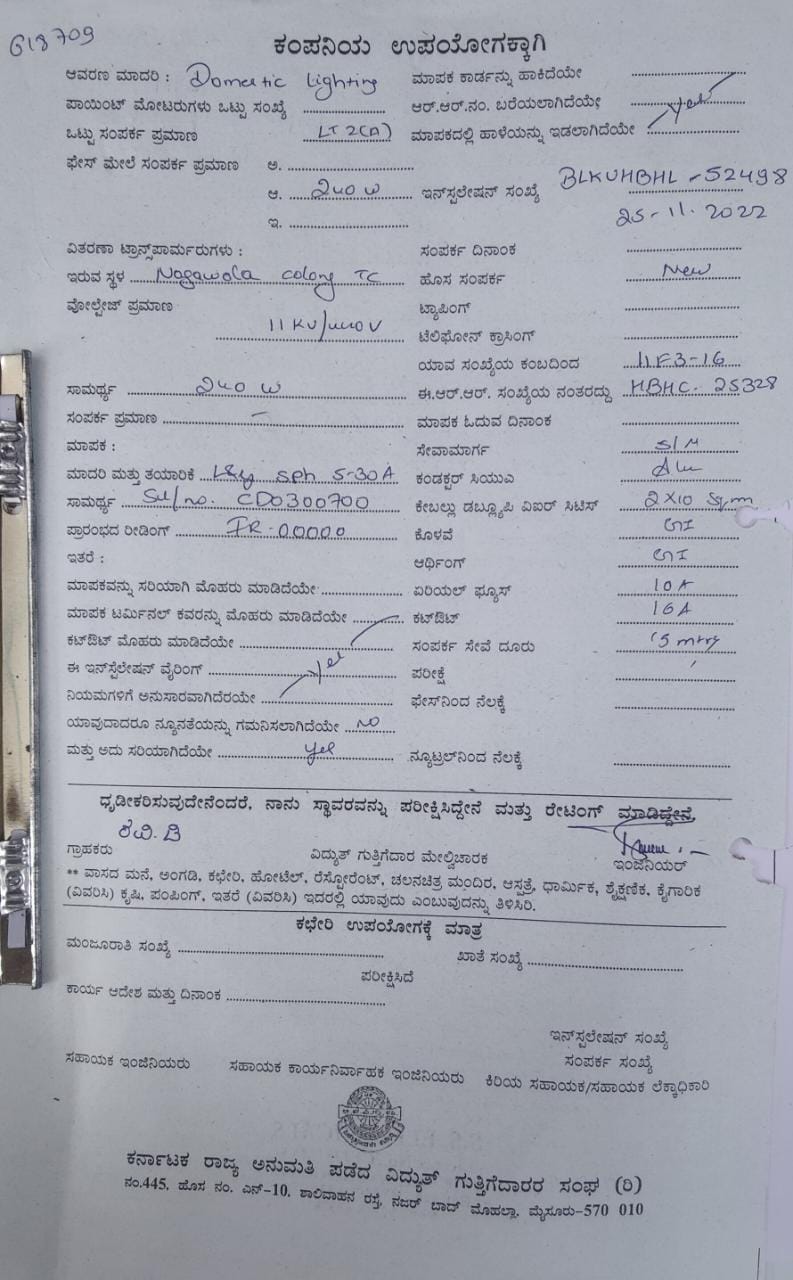 618709
ಕಂಪನಿಯ ಉಪಯೋಗಕ್ಕಾಗಿ
ಆವರಣ ಮಾದರಿ : Domestic Lighting ಮಾಪಕ ಕಾರ್ಡನ್ನು ಹಾಕಿದೆಯೇ
ಪಾಯಿಂಟ್ ಮೋಟರುಗಳು ಒಟ್ಟು ಸಂಖ್ಯೆ ಆರ್.ಆರ್.ನಂ. ಬರೆಯಲಾಗಿದೆಯೇ yes
ಒಟ್ಟು ಸಂಪರ್ಕ ಪ್ರಮಾಣ LT 2(A) ಮಾಪಕದಲ್ಲಿ ಹಾಳೆಯನ್ನು ಇಡಲಾಗಿದೆಯೇ
ಫೇಸ್ ಮೇಲೆ ಸಂಪರ್ಕ ಪ್ರಮಾಣ ಅ.
ಆ. 240 W ಇನ್‌ಸ್ಟಲೇಷನ್ ಸಂಖ್ಯೆ BLKUHBHL-52498
ಇ. 25-11-2022
ವಿತರಣಾ ಟ್ರಾನ್ಸ್‌ಪಾರ್ಮರುಗಳು : ಸಂಪರ್ಕ ದಿನಾಂಕ
ಇರುವ ಸ್ಥಳ Nagawala colony TC ಹೊಸ ಸಂಪರ್ಕ New
ವೋಲ್ಟೇಜ್ ಪ್ರಮಾಣ ಟ್ಯಾಪಿಂಗ್
11 KV/440 V ಟೆಲಿಫೋನ್ ಕ್ರಾಸಿಂಗ್
ಯಾವ ಸಂಖ್ಯೆಯ ಕಂಬದಿಂದ 11F3-16
ಸಾಮರ್ಥ್ಯ 240 W ಈ.ಆರ್.ಆರ್. ಸಂಖ್ಯೆಯ ನಂತರದ್ದು HBHC. 25328
ಸಂಪರ್ಕ ಪ್ರಮಾಣ – ಮಾಪಕ ಓದುವ ದಿನಾಂಕ
ಮಾಪಕ : ಸೇವಾಮಾರ್ಗ S/M
ಮಾದರಿ ಮತ್ತು ತಯಾರಿಕೆ L&G sph 5-30A ಕಂಡಕ್ಟರ್ ಸಿಯುಎ Alu
ಸಾಮರ್ಥ್ಯ Sl/no. CD0300700 ಕೇಬಲ್ಲು ಡಬ್ಲ್ಯೂಪಿ ವಿಐರ್ ಸಿಟಿಸ್ 2X10 Sq.m
ಪ್ರಾರಂಭದ ರೀಡಿಂಗ್ IR-00000 ಕೊಳವೆ GI
ಇತರೆ : ಆರ್ಥಿಂಗ್ GI
ಮಾಪಕವನ್ನು ಸರಿಯಾಗಿ ಮೊಹರು ಮಾಡಿದೆಯೇ ಏರಿಯಲ್ ಫ್ಯೂಸ್ 10 A
ಮಾಪಕ ಟರ್ಮಿನಲ್ ಕವರನ್ನು ಮೊಹರು ಮಾಡಿದೆಯೇ ಕಟ್‌ಔಟ್ 16A
ಕಟ್‌ಔಟ್ ಮೊಹರು ಮಾಡಿದೆಯೇ ಸಂಪರ್ಕ ಸೇವೆ ದೂರು 15 mtrs
ಈ ಇನ್‌ಸ್ಟೆಲೇಷನ್ ವೈರಿಂಗ್ yes ಪರೀಕ್ಷೆ
ನಿಯಮಗಳಿಗೆ ಅನುಸಾರವಾಗಿದೆರೆಯೇ ಫೇಸ್‌ನಿಂದ ನೆಲಕ್ಕೆ
ಯಾವುದಾದರೂ ನ್ಯೂನತೆಯನ್ನು ಗಮನಿಸಲಾಗಿದೆಯೇ NO
ಮತ್ತು ಅದು ಸರಿಯಾಗಿದೆಯೇ yes ನ್ಯೂಟ್ರಲ್‌ನಿಂದ ನೆಲಕ್ಕೆ
ಧೃಡೀಕರಿಸುವುದೇನೆಂದರೆ, ನಾನು ಸ್ಥಾವರವನ್ನು ಪರೀಕ್ಷಿಸಿದ್ದೇನೆ ಮತ್ತು ರೇಟಿಂಗ್ ಮಾಡಿದ್ದೇನೆ.
ಗ್ರಾಹಕರು ವಿದ್ಯುತ್ ಗುತ್ತಿಗೆದಾರ ಮೇಲ್ವಿಚಾರಕ ಇಂಜಿನಿಯರ್
** ವಾಸದ ಮನೆ, ಅಂಗಡಿ, ಕಛೇರಿ, ಹೋಟೆಲ್, ರೆಸ್ಟೋರೆಂಟ್, ಚಲನಚಿತ್ರ ಮಂದಿರ, ಆಸ್ಪತ್ರೆ, ಧಾರ್ಮಿಕ, ಶೈಕ್ಷಣಿಕ, ಕೈಗಾರಿಕ
(ವಿವರಿಸಿ) ಕೃಷಿ, ಪಂಪಿಂಗ್, ಇತರೆ (ವಿವರಿಸಿ) ಇದರಲ್ಲಿ ಯಾವುದು ಎಂಬುವುದನ್ನು ತಿಳಿಸಿರಿ.
ಕಛೇರಿ ಉಪಯೋಗಕ್ಕೆ ಮಾತ್ರ
ಮಂಜೂರಾತಿ ಸಂಖ್ಯೆ ಖಾತೆ ಸಂಖ್ಯೆ
ಪರೀಕ್ಷಿಸಿದೆ
ಕಾರ್ಯ ಆದೇಶ ಮತ್ತು ದಿನಾಂಕ
ಇನ್‌ಸ್ಟಲೇಷನ್ ಸಂಖ್ಯೆ
ಸಂಪರ್ಕ ಸಂಖ್ಯೆ
ಸಹಾಯಕ ಇಂಜಿನಿಯರು ಸಹಾಯಕ ಕಾರ್ಯನಿರ್ವಾಹಕ ಇಂಜಿನಿಯರು ಕಿರಿಯ ಸಹಾಯಕ/ಸಹಾಯಕ ಲೆಕ್ಕಾಧಿಕಾರಿ
ಕರ್ನಾಟಕ ರಾಜ್ಯ ಅನುಮತಿ ಪಡೆದ ವಿದ್ಯುತ್ ಗುತ್ತಿಗೆದಾರರ ಸಂಘ (ರಿ)
ನಂ.445, ಹೊಸ ನಂ. ಎನ್-10, ಶಾಲಿವಾಹನ ರಸ್ತೆ, ನಜರ್ ಬಾದ್ ಮೊಹಲ್ಲಾ, ಮೈಸೂರು-570 010